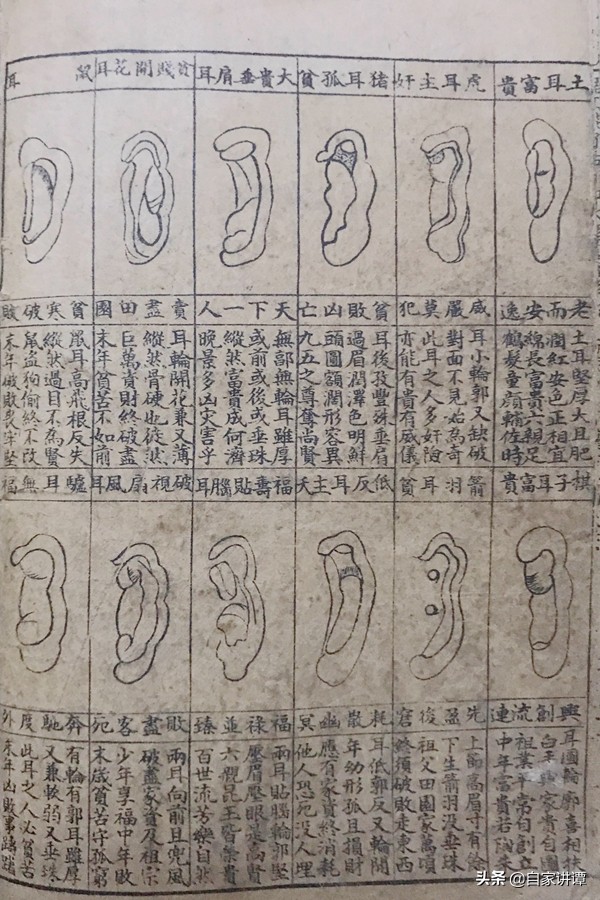 土耳富貴
虎耳主奸
猪耳孤貧
大貴垂肩耳
貧賤開花耳
耳
老而安逸
土耳堅厚大且肥
潤紅安色正相宜
綿長富貴六親足
鶴髮童顔輔佐時
威嚴莫犯
耳小輪郭又缺破
對面不見始為奇
此耳之人多奸險
亦能有貴有威儀
貧敗凶亡
耳後孜豐殊垂肩
過眉潤澤色明鮮
頭圓額濶形容異
九五之尊奪尚賢
天下一人
無郭無輪耳雖厚
或前或後或垂珠
縱然富貴成何濟
晚景多凶灾害乎
賣盡田園
耳輪開花兼又薄
縱然骨硬也徒然
巨萬貲財終破盡
末年貧苦不如前
貧寒破敗
鼠耳高飛根反失
縱然過目不為賢
鼠盗狗偷終不改
末年破敗喪牢堅
棋子耳富貴
箭羽耳貧
低反耳主夭
福壽貼腦耳
破視扇風耳
驢耳無福
興創流連
耳圓輪廓喜相扶
白手成家貴自圖
祖業平常自創立
中年富貴若陶朱
先盈後窘
上節高眉寸有餘
下生箭羽没垂珠
祖父田園家萬頃
終須破敗走東西
耗散幽冥
耳低郭反又輪開
年幼形孤且損財
應有家貲終消耗
他人恐死没人埋
福祿並臻
兩耳貼腦輪郭堅
壓眉壓眼是高賢
六親昆玉皆榮貴
百世流芳樂自然
敗盡客死
兩耳向前且兜風
破盡家資及祖宗
少年享福中年敗
末歲貧苦守孤窮
奔馳度外
有輪有郭耳雖厚
又兼軟弱又垂珠
此耳之人必貧苦
末年凶敗事躊躇
头条 @自家讲谭